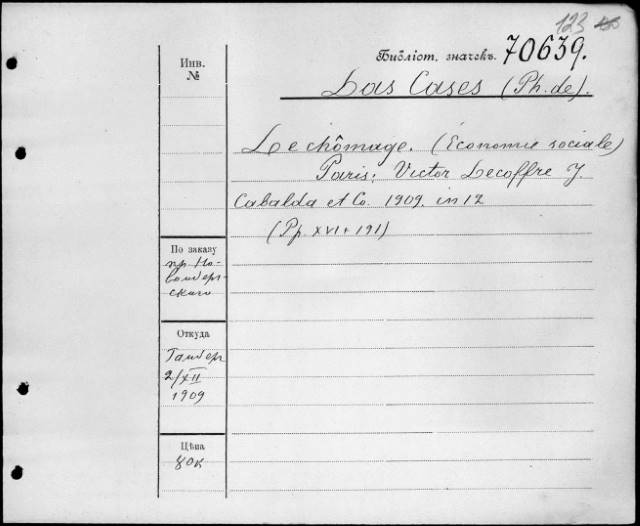 123
Библіот. значекъ 70639.
Инв.
№
Las Cases (Ph. de).
Le chômage. (Économie sociale)
Paris: Victor Lecoffre J.
Cabalda et Co. 1909. in 12
(Pp. XVI + 191)
По заказу
пр. Но-
ского
Откуда
2/XII
1909
Цѣна
80к